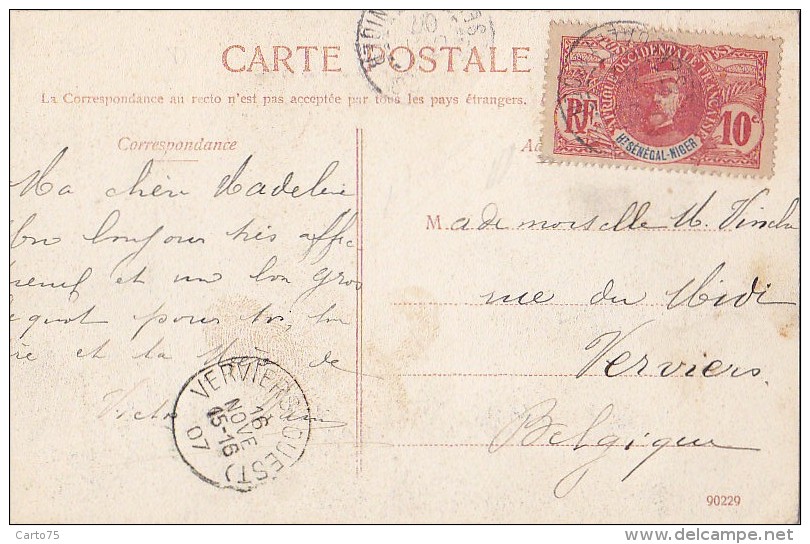 CARTE POSTALE
La Correspondance au recto n'est pas acceptée par tous les pays étrangers.
Correspondance
Ma chère Madeleine
toujours très affec
et un bon gros
pour toi, ton
et ta Mère de
Victo
Mademoiselle M.
rue du Midi
Verviers
Belgique
AFRIQUE OCCIDENTALE FRANÇAISE
RF
10c
Ht SÉNÉGAL-NIGER
VERVIERS (OUEST)
16
NOVE
15-16
07
90229
Carto75
delcampe.net